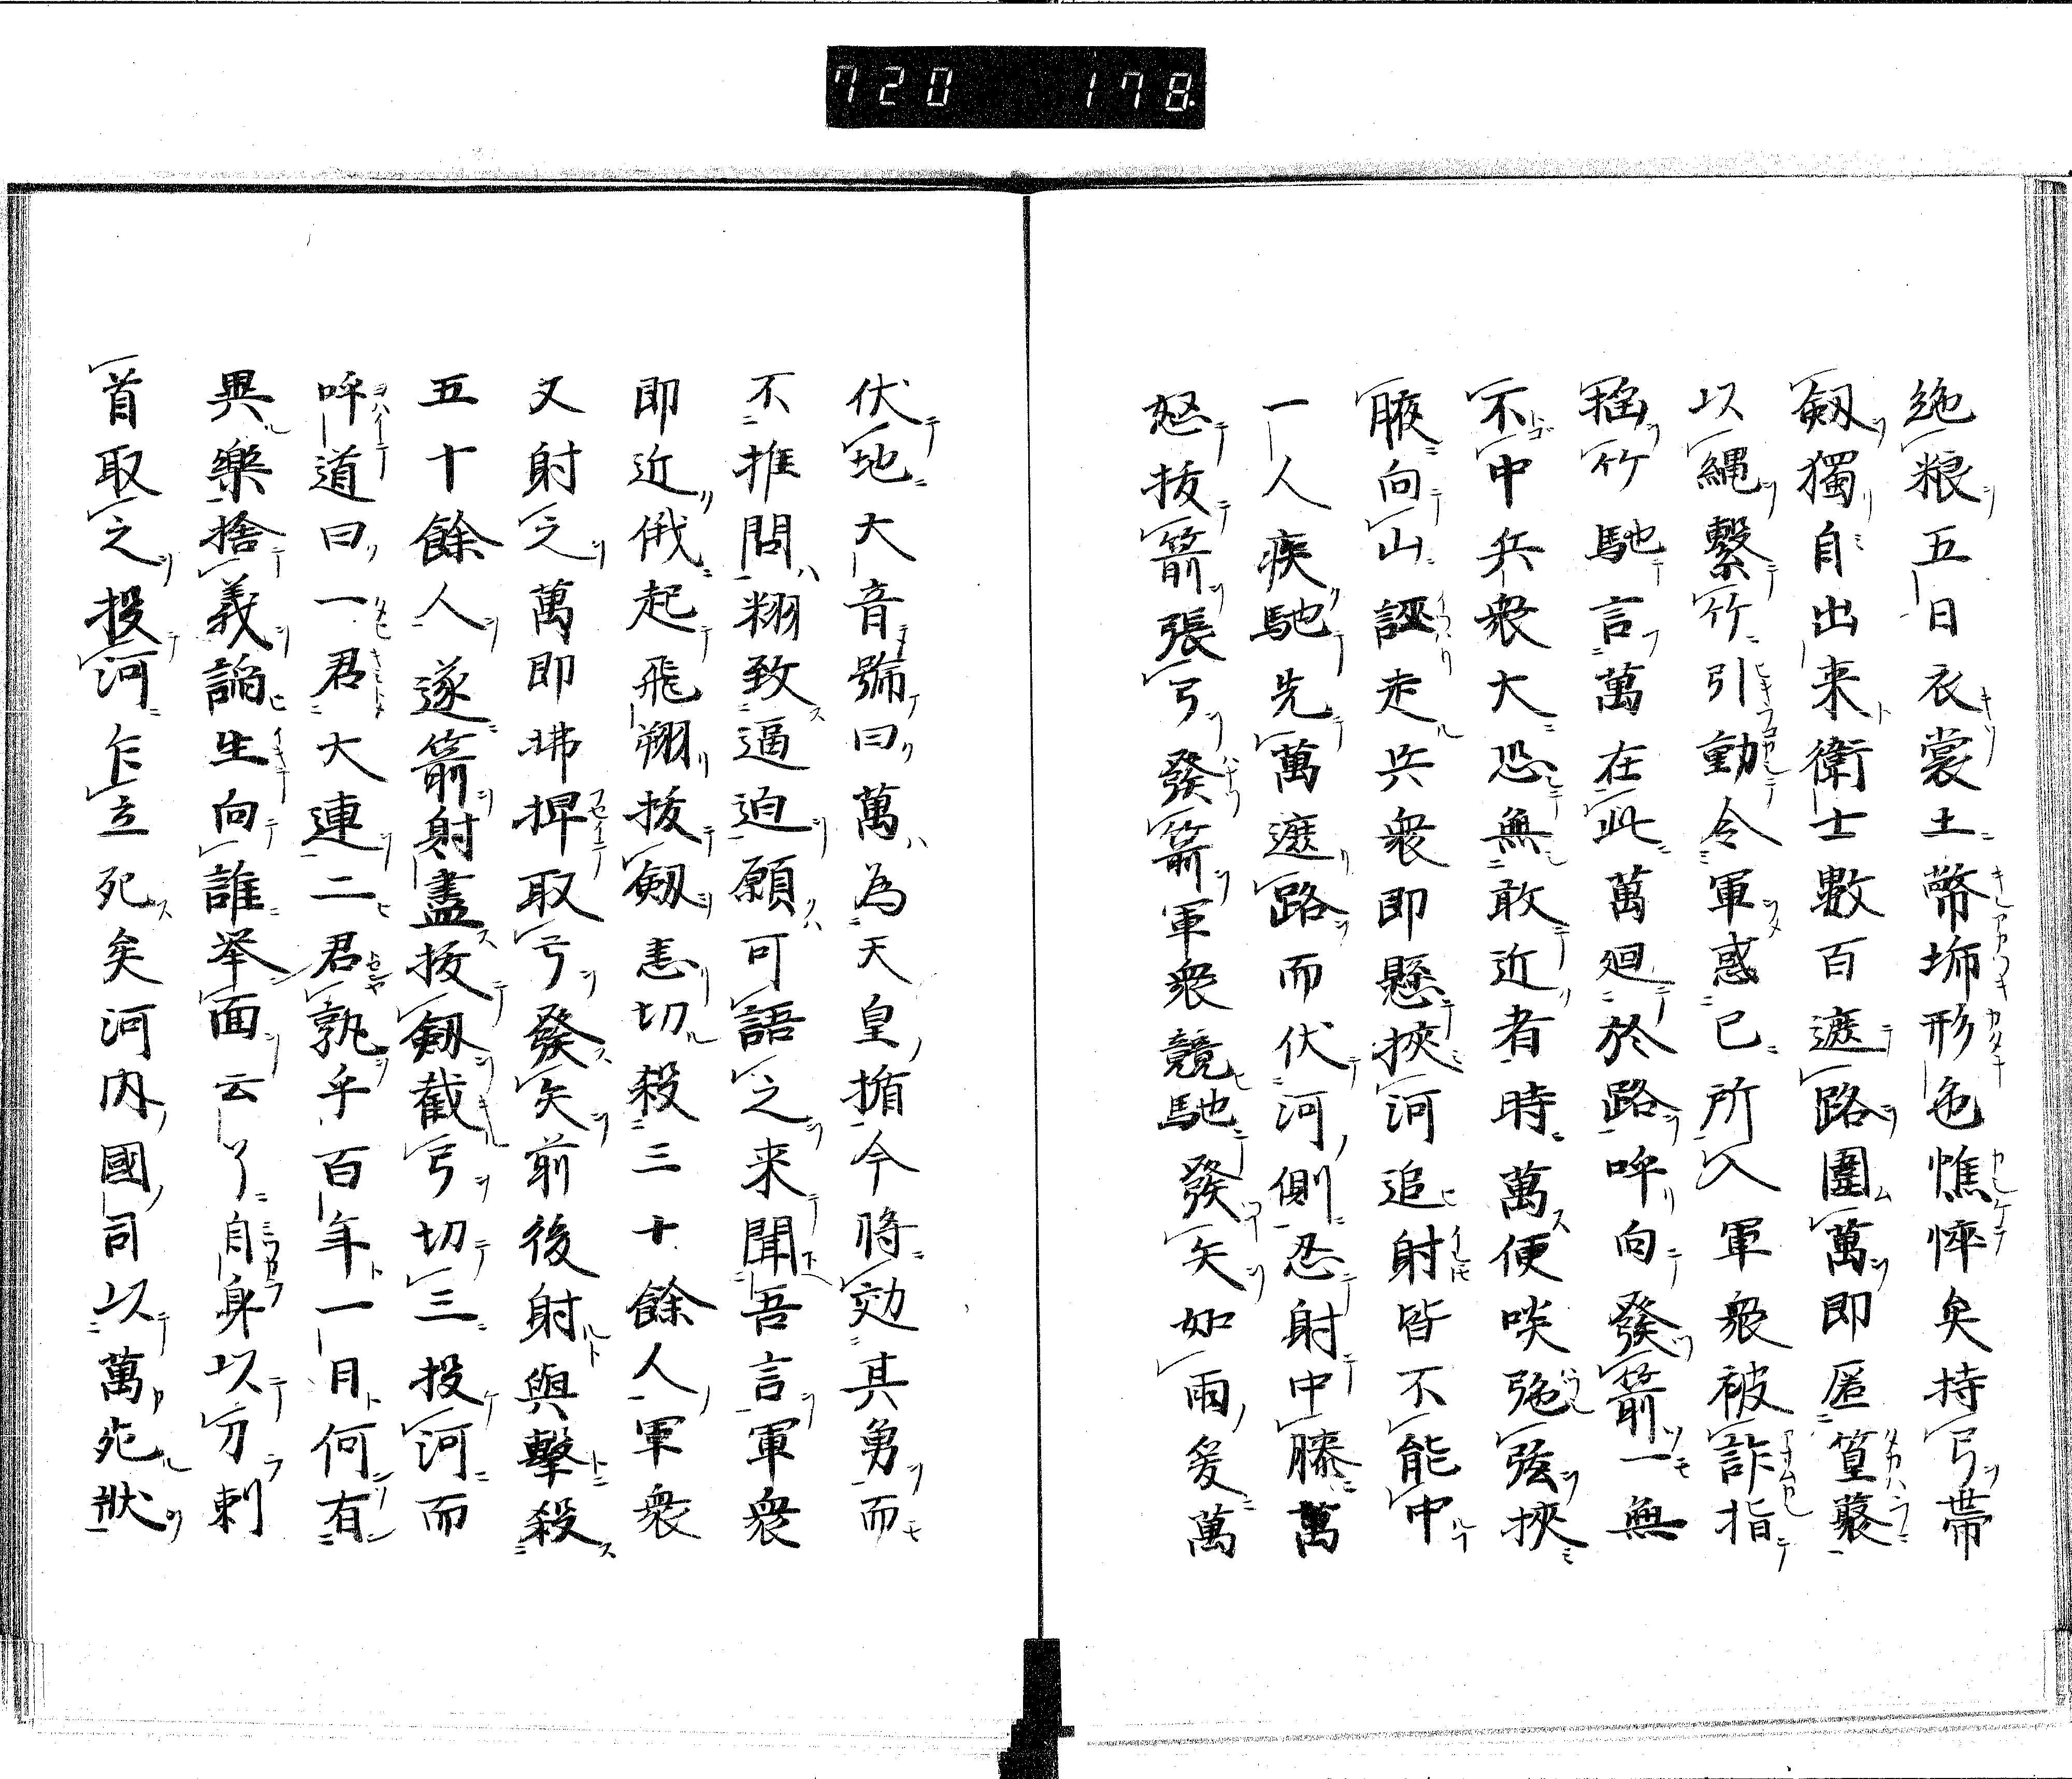 720 178
絶粮五日衣裳土幣垢形色憔悴矣持弓帯
釼獨自出来衛士數百遮路圍萬即匿篁藂
以繩繋竹引動令軍惑已所入軍衆被詐指
揺竹馳言萬在此萬廻於路呼向發箭一無
不中兵衆大恐無敢近者時萬便啖弛弦挾
腋向山誣走兵衆即懸挾河追射皆不能中
一人疾馳先萬遮路而伏河側忍射中膝萬
怒抜箭張弓發箭軍衆競馳發矢如雨爰萬
伏地大音號曰萬為天皇揗今将効其勇而
不推問翔致逼迫願可語之来聞吾言軍衆
即近俄起飛翔抜釼恚切殺三十餘人軍衆
又射之萬即
取弓發矢前後射與擊殺
五十餘人遂箭射盡抜釼截弓切三投河而
呼道曰一君大連二君孰乎百年一月何有
異樂捨義謟生向誰举面云丫自身以刀刺
首取之投河乍立死矣河内國司以萬死状